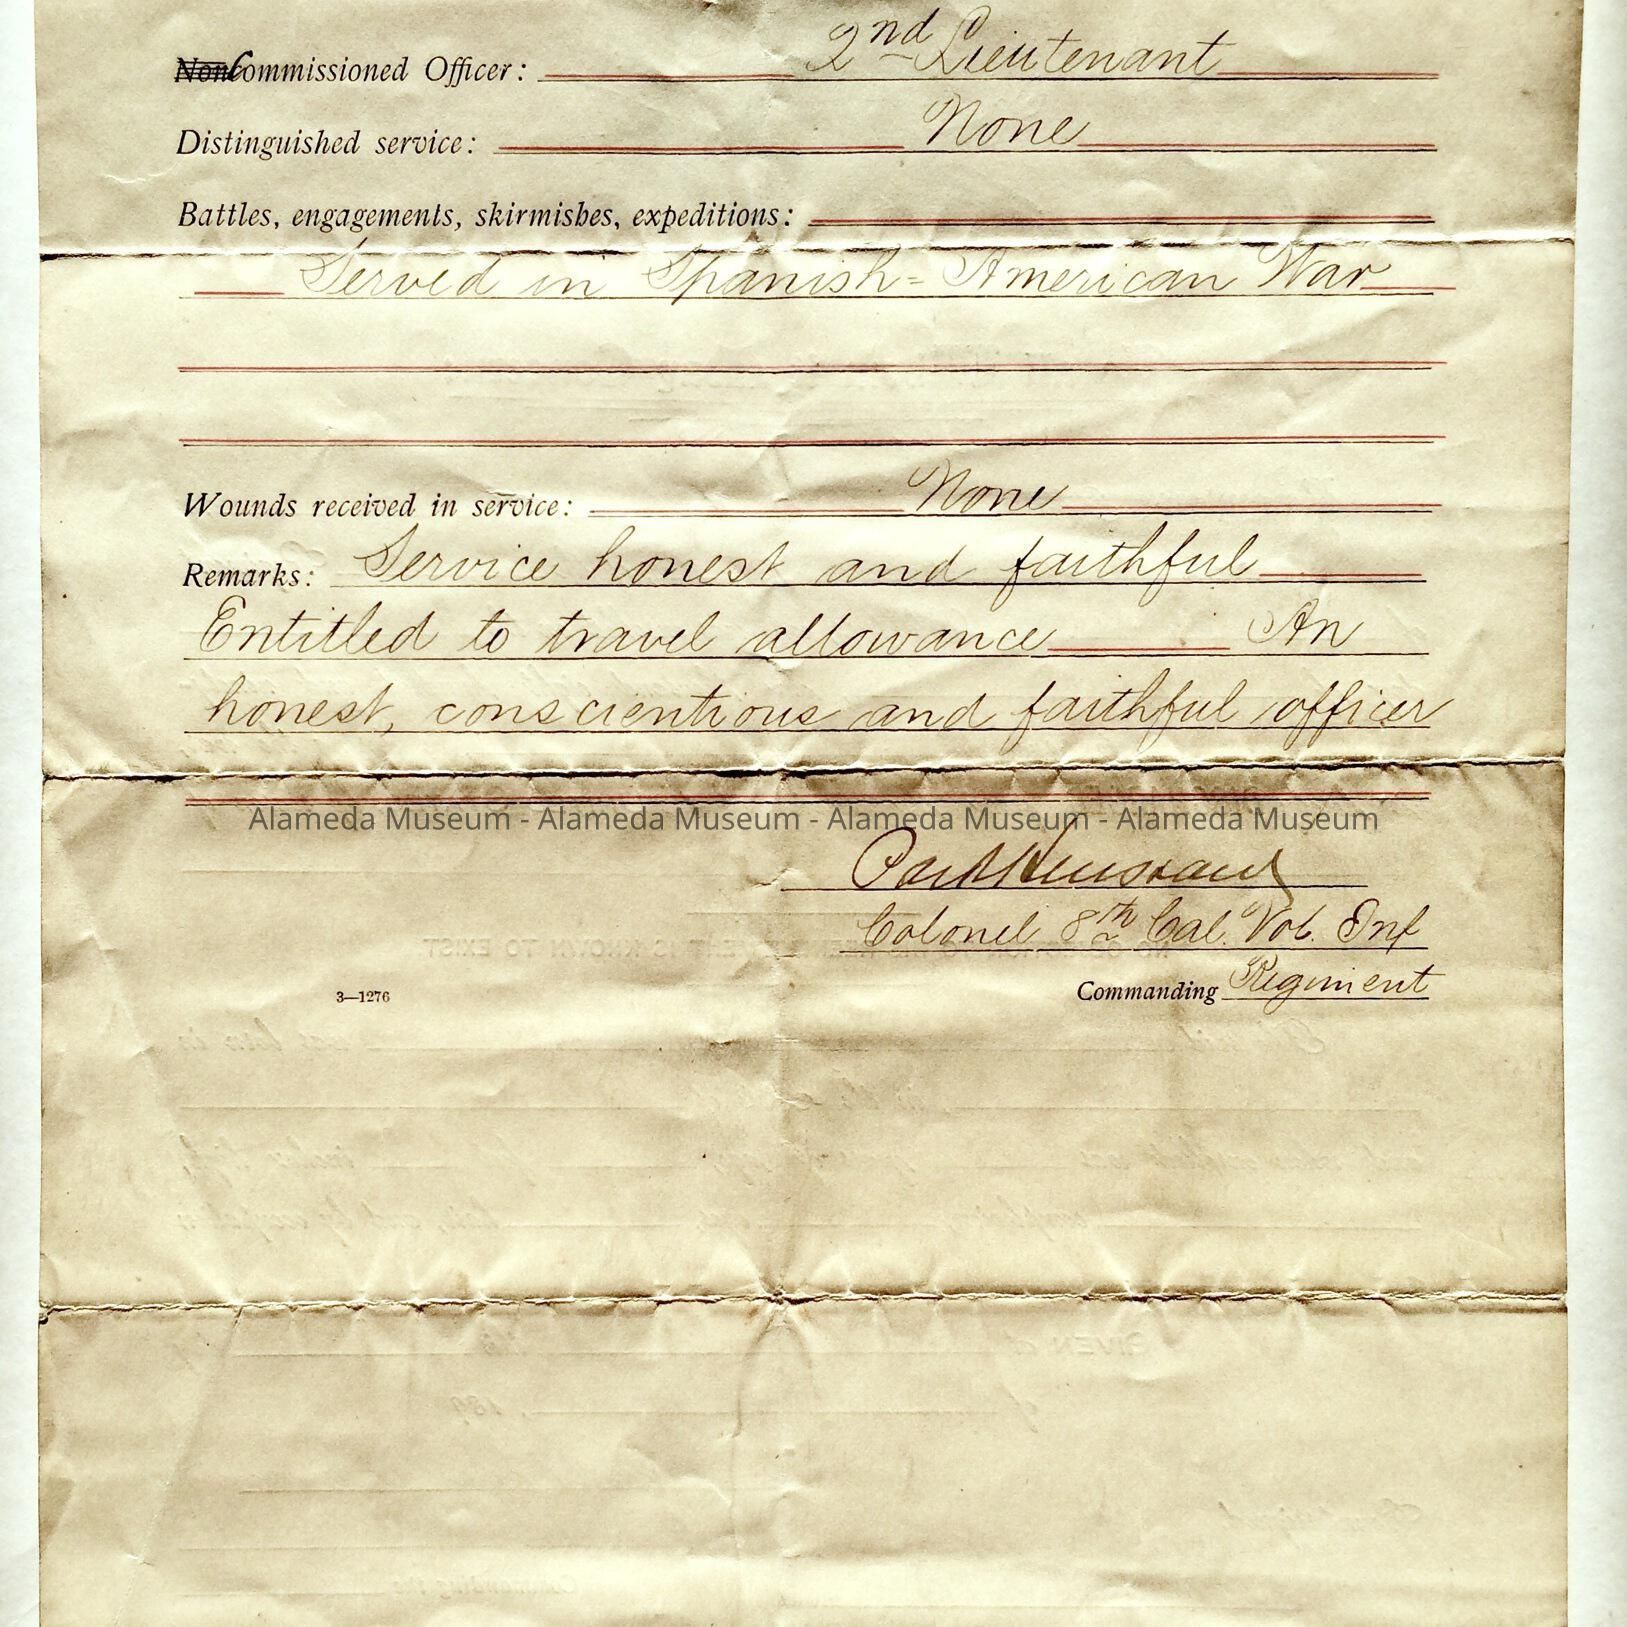 Commissioned Officer: 2nd Lieutenant
Distinguished service: None
Battles, engagements, skirmishes, expeditions:
Served in Spanish=American War
Wounds received in service: None
Remarks: Service honest and faithful
Entitled to travel allowance An
honest, conscientious and faithful officer
Alameda Museum - Alameda Museum - Alameda Museum - Alameda Museum
Colonel 8th Cal. Vol. Inf
Commanding Regiment
3—1276